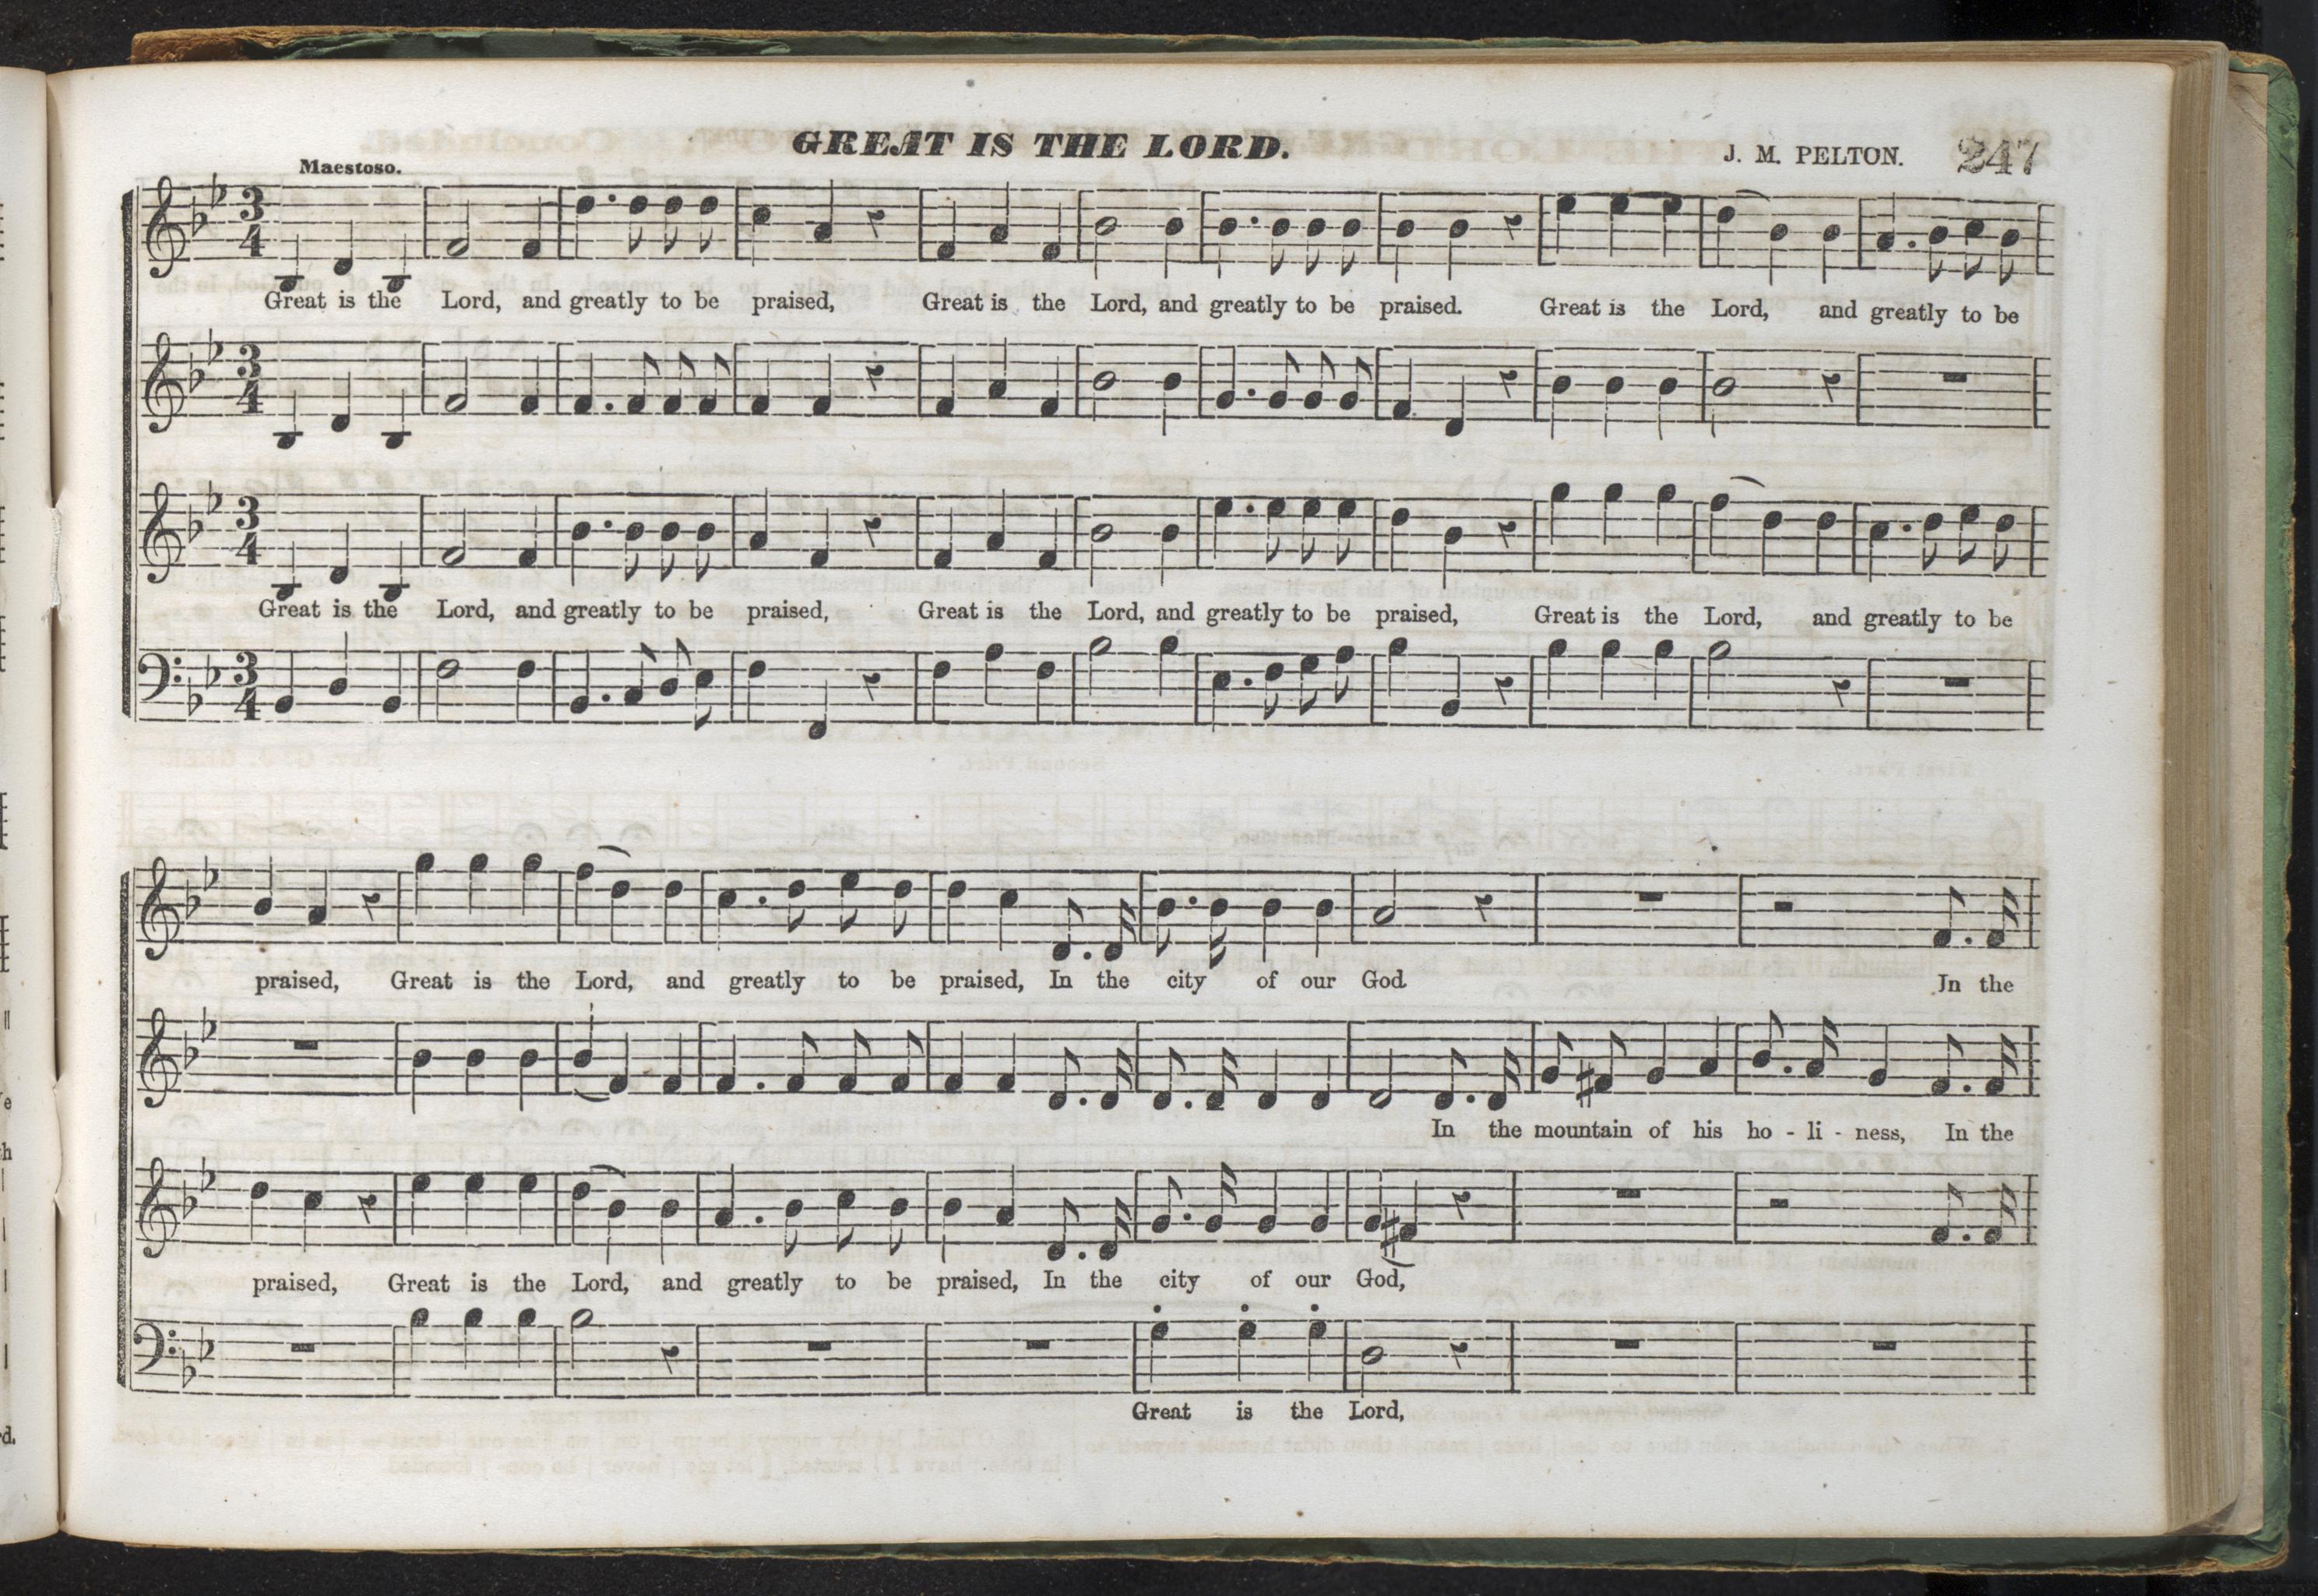 GREAT IS THE LORD.
J. M. PELTON. 247
Maestoso.
3 4
Great is the Lord, and greatly to be praised, Great is the Lord, and greatly to be praised. Great is the Lord, and greatly to be
3 4
3 4
Great is the Lord, and greatly to be praised, Great is the Lord, and greatly to be praised, Great is the Lord, and greatly to be
3 4
praised, Great is the Lord, and greatly to be praised, In the city of our God. In the
In the mountain of his ho - li - ness, In the
praised, Great is the Lord, and greatly to be praised, In the city of our God,
Great is the Lord,